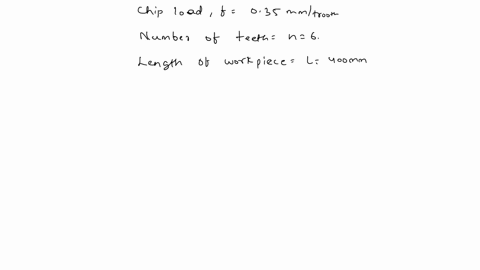 Chip load, f = 0.35 mm/tooth
Number of teeth = n = 6.
Length of workpiece = L = 400mm